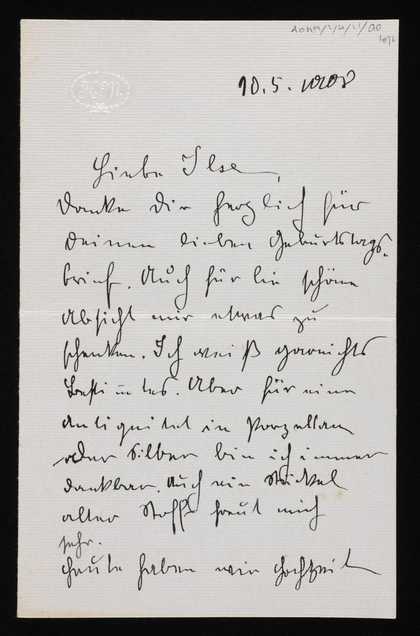 10.5.1908
Liebe Ilse,
Danke Dir herzlich für
Deinen lieben Geburtstags-
brief. Auch für die schöne
Absicht mir etwas zu
schenken. Ich weiß garnichts
Bestimmtes. Aber für eine
Antiquität in Porzellan
oder Silber bin ich immer
dankbar. Auch ein Stückel
alter Stoff freut mich
sehr.
Heute haben wir Hochzeit